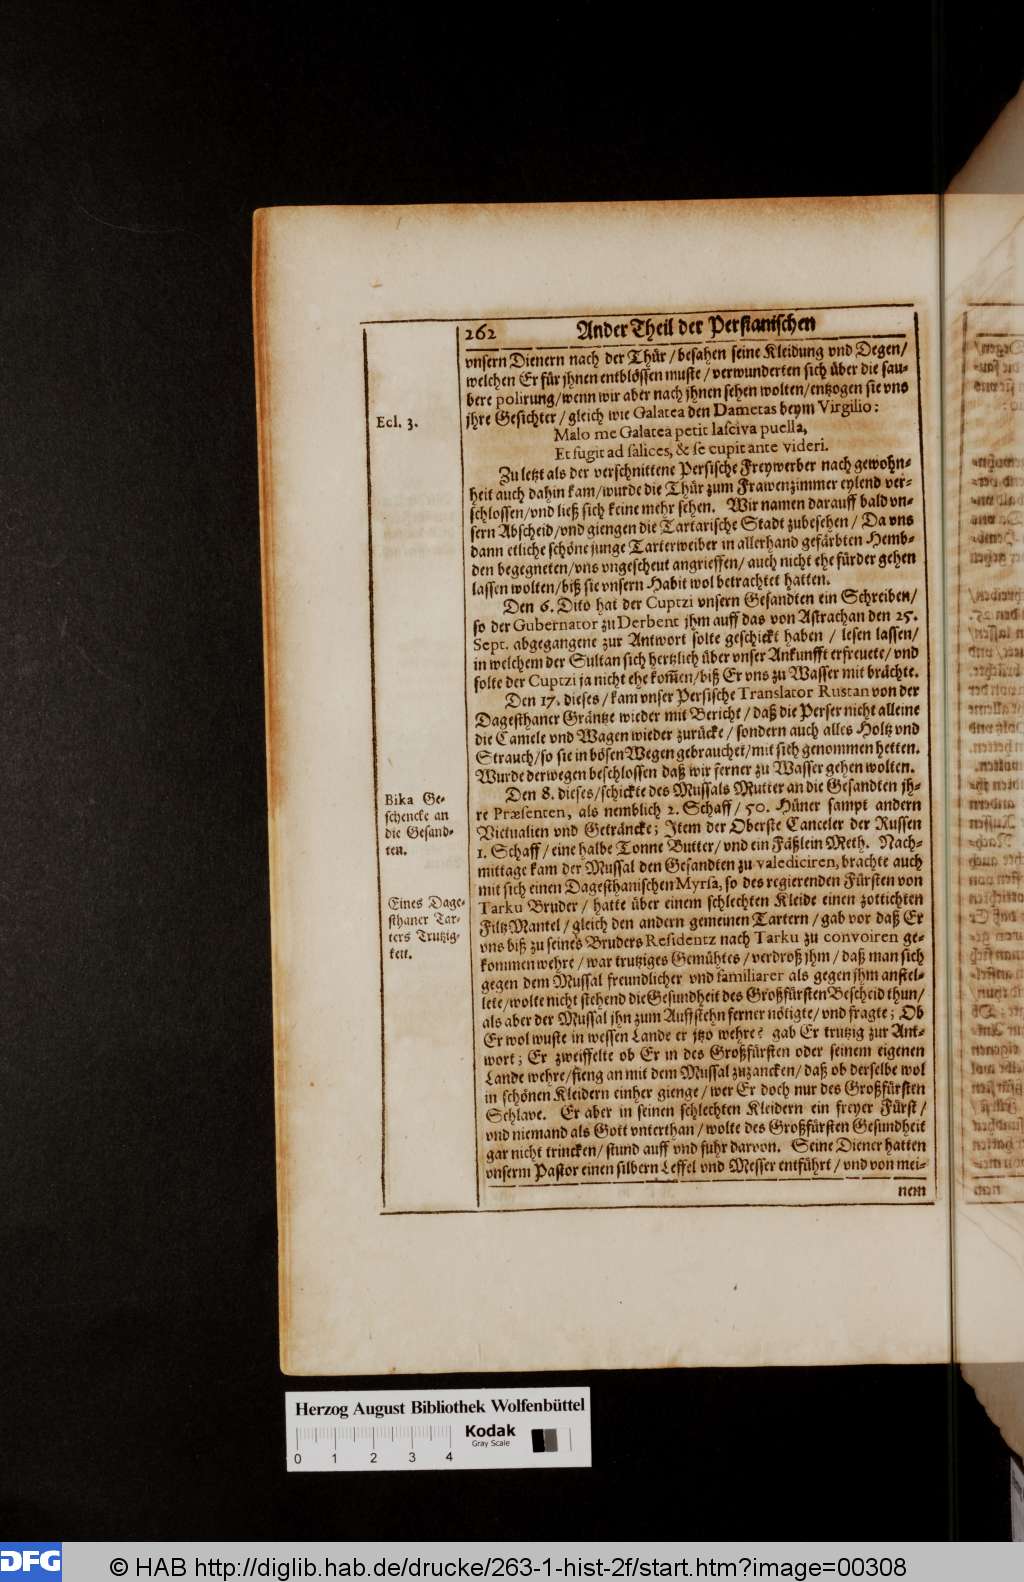 262 Ander Theil der Persianischen
vnsern Dienern nach der Thür / besahen seine Kleidung vnd Degen/
welchen Er für jhnen entblössen muste / verwunderten sich über die sau-
bere polirung/wenn wir aber nach jhnen sehen wolten/entzogen sie vns
jhre Gesichter / gleich wie Galatea den Dametas beym Virgilio:
Ecl. 3.
Malo me Galatea petit lasciva puella,
Et fugit ad salices, & se cupit ante videri.
Zu letzt als der verschnittene Persische Freywerber nach gewohn-
heit auch dahin kam/wurde die Thür zum Frawenzimmer eylend ver-
schlossen/vnd ließ sich keine mehr sehen. Wir namen darauff bald vn-
sern Abscheid/vnd giengen die Tartarische Stadt zubesehen / Da vns
dann etliche schöne junge Tarterweiber in allerhand gefärbten Hemb-
den begegneten/vns vngescheut angrieffen/ auch nicht ehe fürder gehen
lassen wolten/biß sie vnsern Habit wol betrachtet hatten.
Den 6. Dito hat der Cuptzi vnsern Gesandten ein Schreiben/
so der Gubernator zu Derbent jhm auff das von Astrachan den 25.
Sept. abgegangene zur Antwort solte geschickt haben / lesen lassen/
in welchem der Sultan sich hertzlich über vnser Ankunfft erfreuete/ vnd
solte der Cuptzi ja nicht ehe kom̃en/biß Er vns zu Wasser mit brächte.
Den 17. dieses / kam vnser Persische Translator Rustan von der
Dagesthaner Gräntze wieder mit Bericht / daß die Perser nicht alleine
die Camele vnd Wagen wieder zurücke / sondern auch alles Holtz vnd
Strauch/so sie in bösen Wegen gebrauchet/mit sich genommen hetten.
Wurde derwegen beschlossen daß wir ferner zu Wasser gehen wolten.
Bika Ge-
schencke an
die Gesand-
ten.
Den 8. dieses/schickte des Mussals Mutter an die Gesandten jh-
re Præsenten, als nemblich 2. Schaff / 50. Hüner sampt andern
Victualien vnd Geträncke; Item der Oberste Canceler der Russen
1. Schaff / eine halbe Tonne Butter/ vnd ein Fäßlein Meth. Nach-
mittage kam der Mussal den Gesandten zu valediciren, brachte auch
mit sich einen Dagesthanischen Myrsa, so des regierenden Fürsten von
Eines Dage-
sthaner Tar-
ters Trutzig-
keit.
Tarku Bruder / hatte über einem schlechten Kleide einen zottichten
FiltzMantel / gleich den andern gemeinen Tartern / gab vor daß Er
vns biß zu seines Bruders Residentz nach Tarku zu convoiren ge-
kommen wehre / war trutziges Gemühtes / verdroß jhm / daß man sich
gegen dem Mussal freundlicher vnd familiarer als gegen jhm anstel-
lete/wolte nicht stehend die Gesundheit des Großfürsten Bescheid thun/
als aber der Mussal jhn zum Auffstehn ferner nötigte/ vnd fragte; Ob
Er wol wuste in wessen Lande er jtzo wehre? gab Er trutzig zur Ant-
wort; Er zweiffelte ob Er in des Großfürsten oder seinem eigenen
Lande wehre/fieng an mit dem Mussal zuzancken/ daß ob derselbe wol
in schönen Kleidern einher gienge / wer Er doch nur des Großfürsten
Schlave. Er aber in seinen schlechten Kleidern ein freyer Fürst /
vnd niemand als Gott vnterthan / wolte des Großfürsten Gesundheit
gar nicht trincken/ stund auff vnd fuhr darvon. Seine Diener hatten
vnserm Pastor einen silbern Leffel vnd Messer entführt / vnd von mei-
nem
Herzog August Bibliothek Wolfenbüttel
Kodak
Gray Scale
0 1 2 3 4
DFG © HAB http://diglib.hab.de/drucke/263-1-hist-2f/start.htm?image=00308